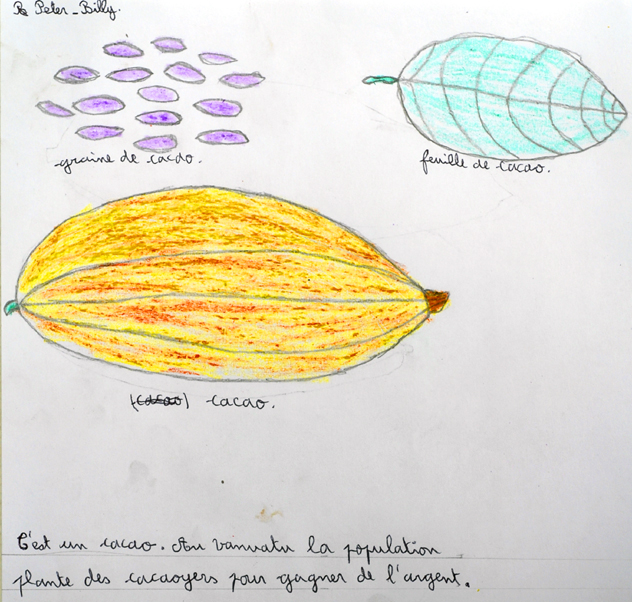 Peter-Billy.
graine de cacao.
feuille de cacao.
(cacao) cacao.
C'est un cacao. Au vanuatu la population
plante des cacaoyers pour gagner de l'argent.